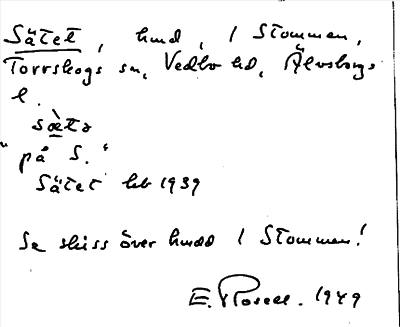 Sätet, hmd, i Stommen,
Torrskogs sn, Vedbo hd, Älvsborgs
l.
sæ̀tə
"på S."
Sätet hb 1939
Se skiss över hmdd i Stommen!
E. Rosell. 1949